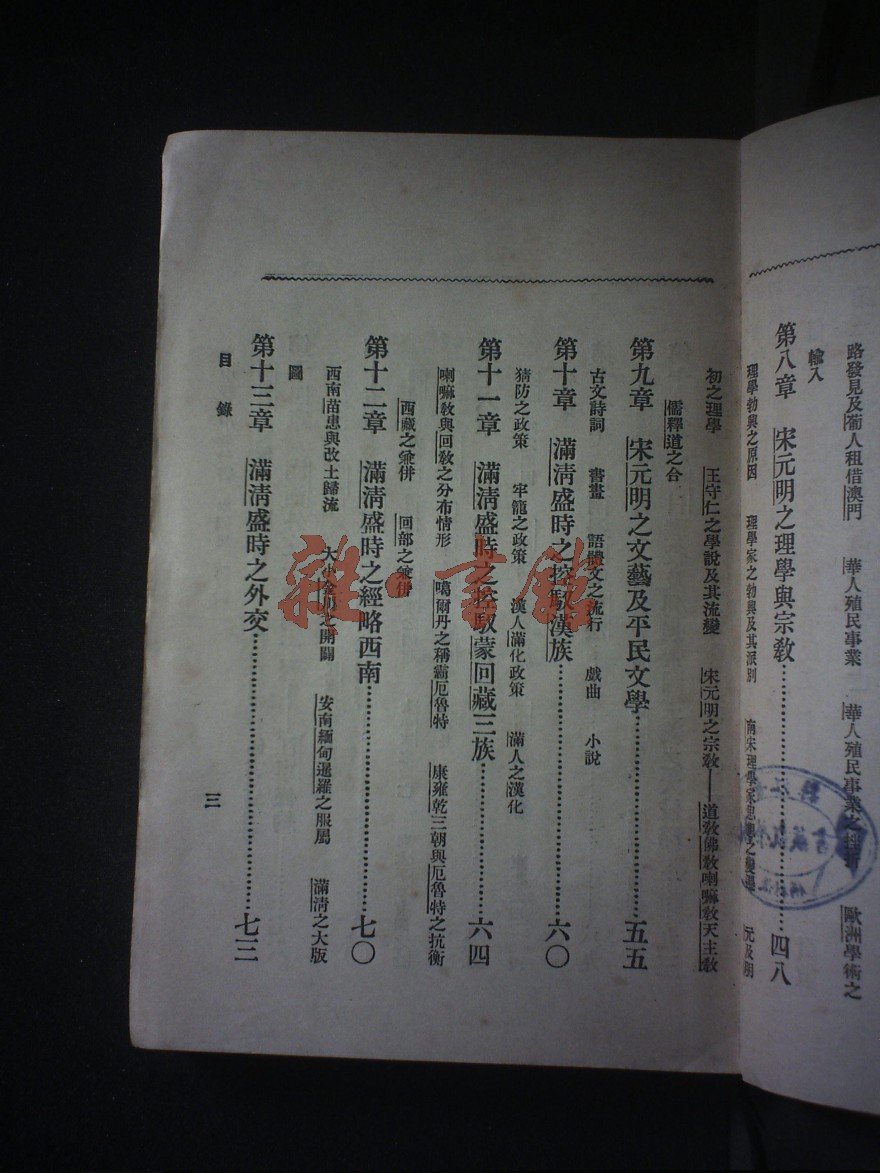 路發見及葡人租借澳門　華人殖民事業　華人殖民事業之　歐洲學術之
輸入
第八章　宋元明之理學與宗教⋯⋯⋯⋯四八
理學勃興之原因　理學家之勃興及其派別　南宋理學家思想之變遷　元及明
初之理學　王守仁之學說及其流變　宋元明之宗教——道教佛教喇嘛教天主教
儒釋道之合
第九章　宋元明之文藝及平民文學⋯⋯⋯⋯五五
古文詩詞　書畫　語體文之流行　戲曲　小說
第十章　滿淸盛時之控馭漢族⋯⋯⋯⋯六〇
猜防之政策　牢籠之政策　漢人滿化政策　滿人之漢化
第十一章　滿淸盛時之控馭蒙回藏三族⋯⋯⋯⋯六四
喇嘛教與回教之分布情形　噶爾丹之稱霸厄魯特　康雍乾三朝與厄魯特之抗衡
西藏之兼併　回部之兼併
第十二章　滿淸盛時之經略西南⋯⋯⋯⋯七〇
西南苗患與改土歸流　大小金川之開闢　安南緬甸暹羅之服屬　滿淸之大版
圖
第十三章　滿淸盛時之外交⋯⋯⋯⋯七三
目錄
三
雜·書館